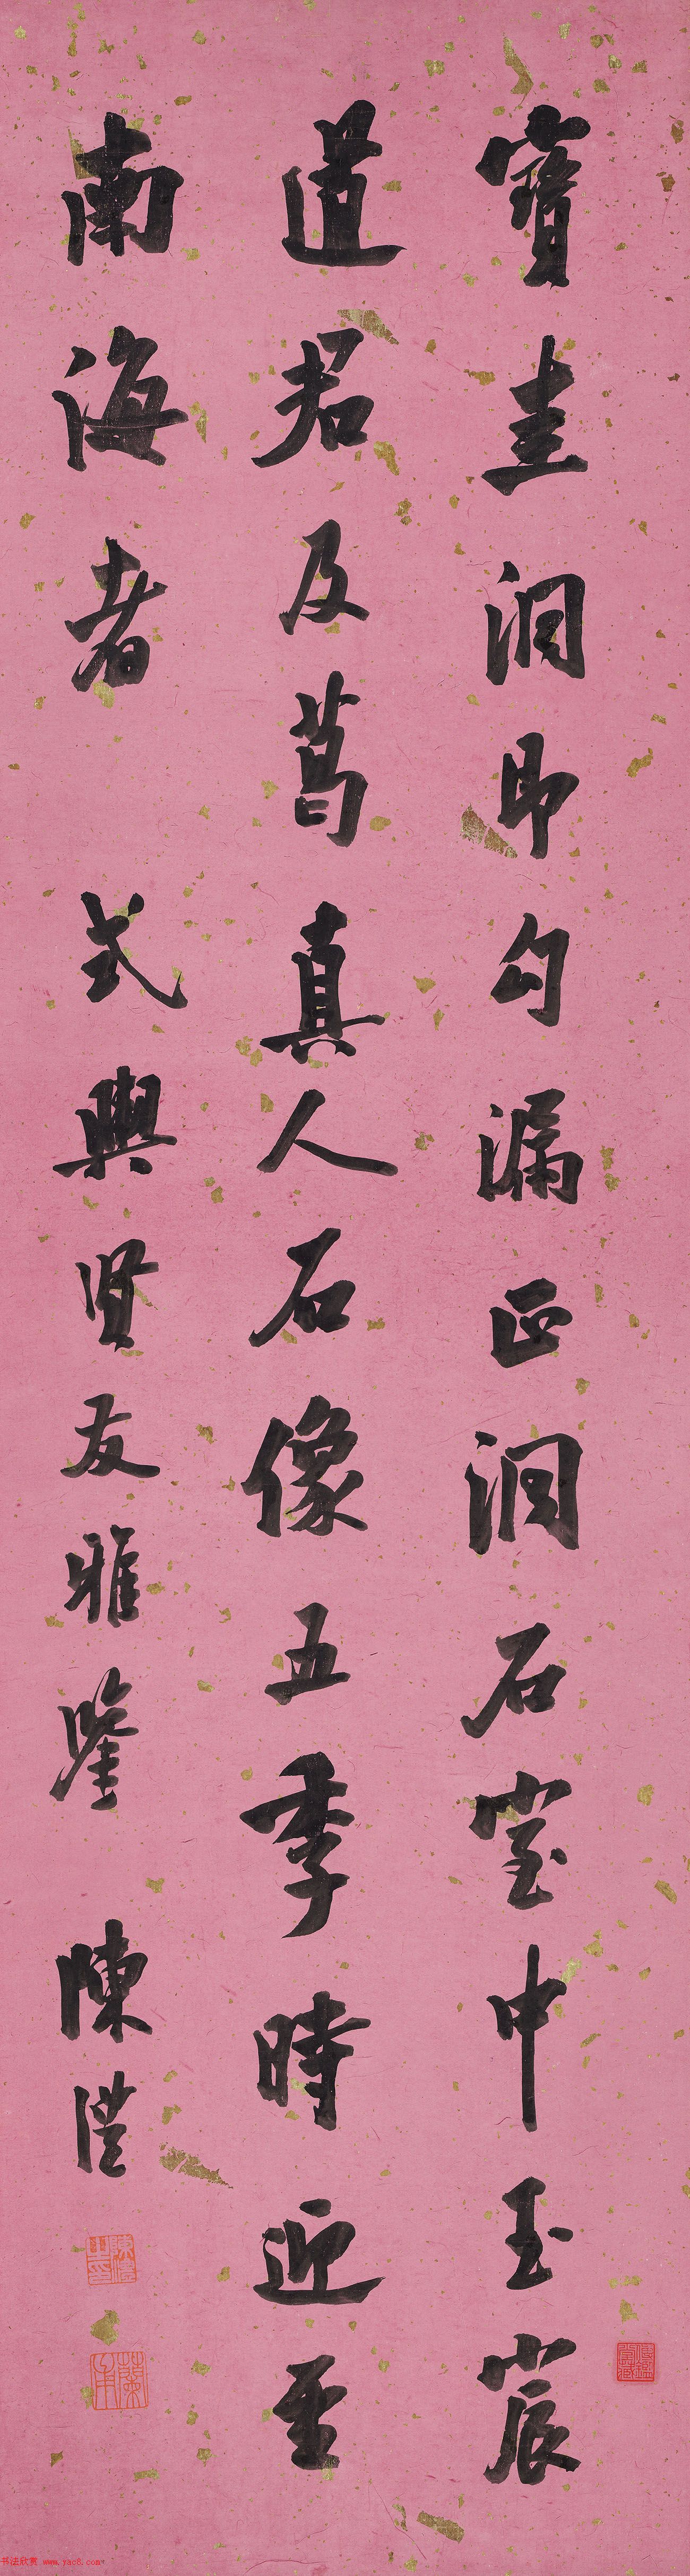 寶圭洞即勾漏正洞石室中玉宸
道君及葛真人石像五季時近至
南海者
式輿賢友雅鑒 陳澧
陳澧之印
蘭甫
书法欣赏 www.yac8.com